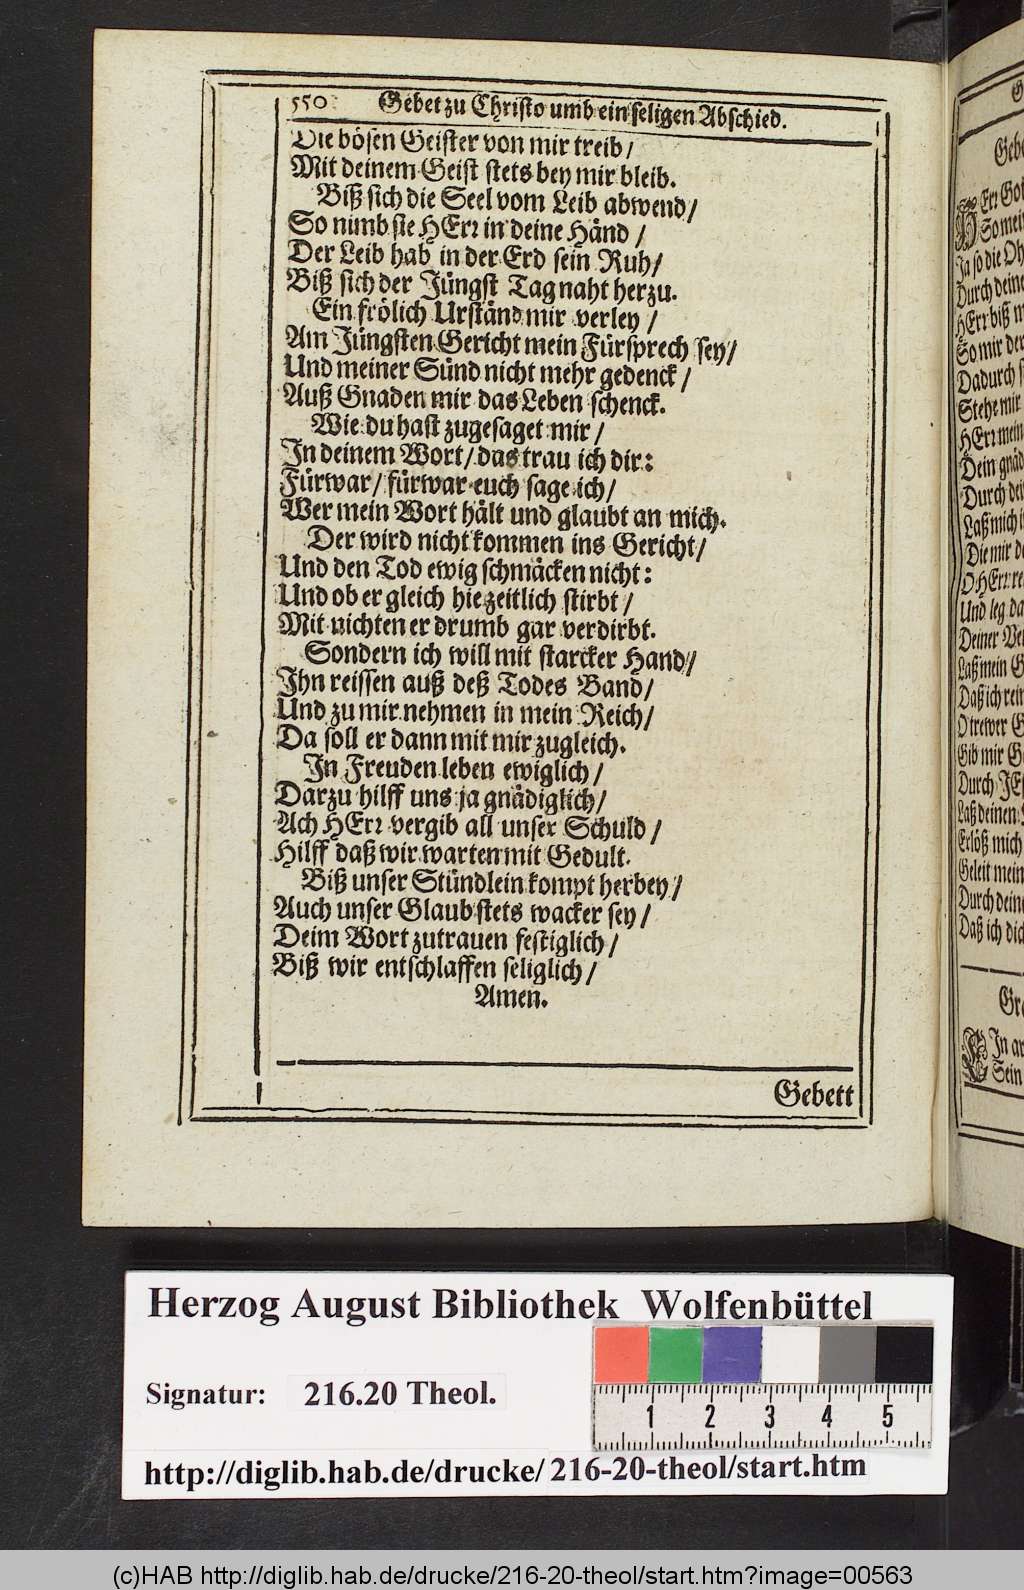 550 Gebet zu Christo umb ein seligen Abschied.
Die bösen Geister von mir treib/
Mit deinem Geist stets bey mir bleib.
Biß sich die Seel vom Leib abwend/
So nimb sie HErr in deine Händ/
Der Leib hab in der Erd sein Ruh/
Biß sich der Jüngst Tag naht herzu.
Ein frölich Urständ mir verley/
Am Jüngsten Gericht mein Fürsprech sey/
Und meiner Sünd nicht mehr gedenck/
Auß Gnaden mir das Leben schenck.
Wie du hast zugesaget mir/
In deinem Wort/ das trau ich dir:
Fürwar/ fürwar euch sage ich/
Wer mein Wort hält und glaubt an mich.
Der wird nicht kommen ins Gericht/
Und den Tod ewig schmäcken nicht:
Und ob er gleich hie zeitlich stirbt/
Mit nichten er drumb gar verdirbt.
Sondern ich will mit starcker Hand/
Ihn reissen auß deß Todes Band/
Und zu mir nehmen in mein Reich/
Da soll er dann mit mir zugleich.
In Freuden leben ewiglich/
Darzu hilff uns ja gnädiglich/
Ach HErr vergib all unser Schuld/
Hilff daß wir warten mit Gedult.
Biß unser Stündlein kompt herbey/
Auch unser Glaub stets wacker sey/
Deim Wort zutrauen festiglich/
Biß wir entschlaffen seliglich/
Amen.
Gebett
HErr
So
Ja so die
Durch deine
HErr biß
So mir der
Dadurch
Stehe mir
HErr mein
Dein
Durch
Laß mich
Die mir
O HErr
Und leg
Deiner
Laß mein
Daß ich
O trewer
Gib mir
Durch
Laß deinen
Erlöß mich
Geleit mein
Durch deine
Daß ich
In
Sein
Herzog August Bibliothek Wolfenbüttel
Signatur: 216.20 Theol.
1 2 3 4 5
http://diglib.hab.de/drucke/216-20-theol/start.htm
(c)HAB http://diglib.hab.de/drucke/216-20-theol/start.htm?image=00563